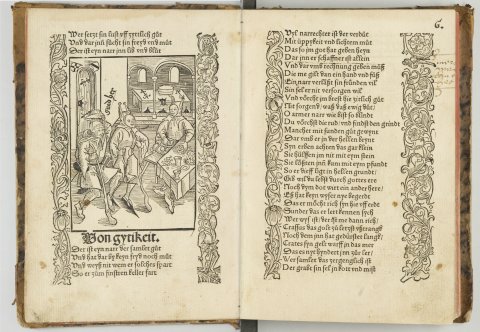 Wer setzt sin lust vff zytlich gůt
Vnd dar jnn sůcht sin freyd vnd můt
Der ist eyn narr jnn lib vnd blůt
Von gytikeit.
Der ist eyn narr der samlet gůt
Vnd hat dar by keyn freyd noch můt
Vnd weyß nit wem er solches spart
So er zům finstren keller fart
6.
Vyl narrechter ist der verdůt
Mit üppykeit vnd lichtem můt
Das so jm got hat geben heyn
Dar jnn er schaffner ist alleyn
Vnd dar vmb rechnung geben můß
Die me gilt dan ein hand vnd fůß
Ein narr verlaßt sin fründen vil
Sin sel er nit versorgen wil
Vnd vörcht jm brest hie zytlich gůt
Nit sorgend / waß das ewig důt /
O armer narr wie bist so blindt
Du vörchst die rud / vnd findst den grindt
Mancher mit sunden gůt gewynt
Dar vmb er jn der hellen brynt
Syn erben achten das gar kleyn
Sie hülffen jm nit mit eym steyn
Sie lößten jnn kum mit eym pfundt
So er dieff ligt in hellen grundt /
Gib wil du lebst durch gottes ere
Noch dym dot wirt ein ander here /
Es hat keyn wyser nye begerdt
Das er möcht rich syn hie vff erdt
Sunder das er lert kennen sych
Wer wyß ist / der ist me dann rich /
Crassus das golt zů letzst vßtranck
Noch dem jnn hat gedürstet langk /
Crates syn gelt warff in das mer
Das es nyt hyndert jnn zůr ler /
Wer samlet das zergenglich ist
Der grabt sin sel jn kott vnd mist